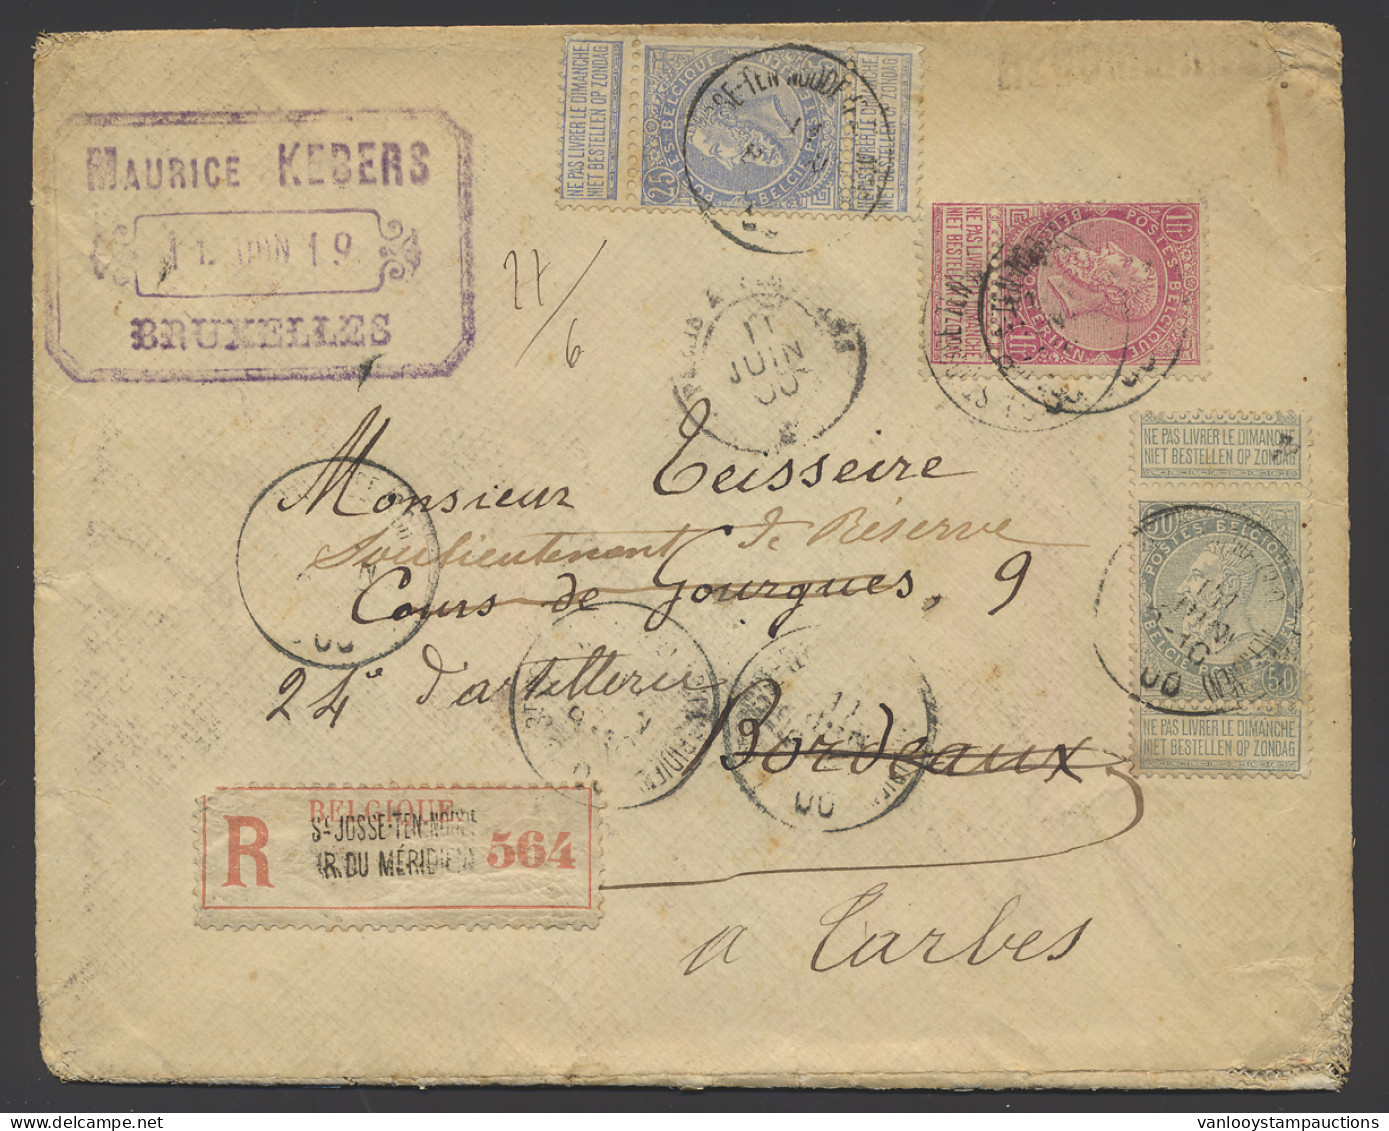 MAURICE KEBERS
11 JUIN 19
BRUXELLES
NE PAS LIVRER LE DIMANCHE
NIET BESTELLEN OP ZONDAG
25
POSTES BELGIQUE
BELGIE POSTERIJEN
NE PAS LIVRER LE DIMANCHE
NIET BESTELLEN OP ZONDAG
NE PAS LIVRER LE DIMANCHE
NIET BESTELLEN OP ZONDAG
1fr
POSTES BELGIQUE
1fr
11/6
11
JUIN
00
NE PAS LIVRER LE DIMANCHE
NIET BESTELLEN OP ZONDAG
50
POSTES BELGIQUE
BELGIE
50
NE PAS LIVRER LE DIMANCHE
NIET BESTELLEN OP ZONDAG
Monsieur Teisseire
Souslieutenant de Réserve
Cours de Gourgues, 9
24e d'artillerie
Bordeaux
BELGIQUE
R
ST JOSSE-TEN-NOODE
(R. DU MÉRIDIEN)
564
a Tarbes
vanlooystampauctions